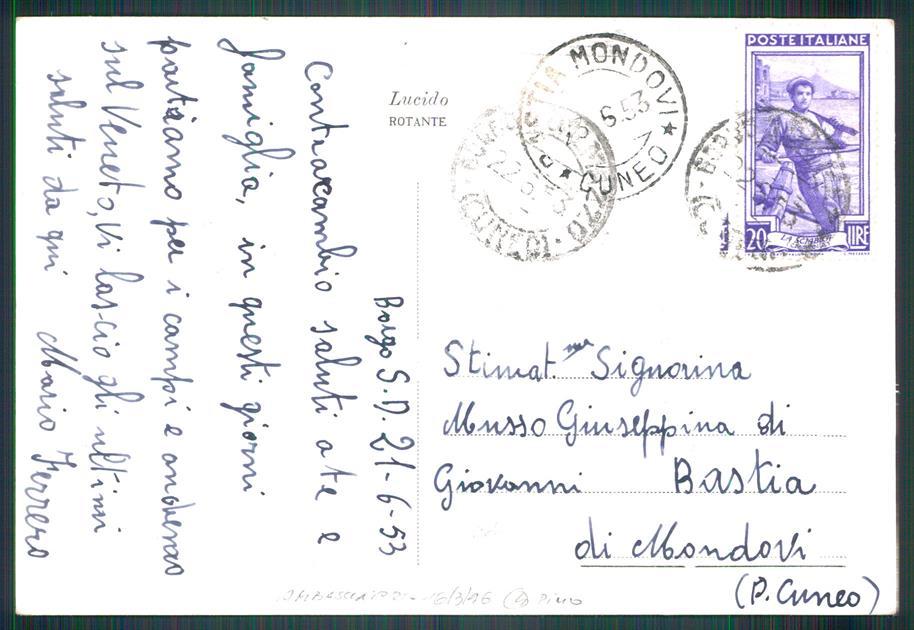 Borgo S.D. 21-6-53
Contraccambio saluti a te e
famiglia, in questi giorni
partiamo per i campi e anderemo
sul Veneto, Vi lascio gli ultimi
saluti da qui Mario Ferrero
Lucido
ROTANTE
BASTIA MONDOVI
6.53
CUNEO
BORGO
22.6
(CUNEO)
POSTE ITALIANE
20 LIRE
Stimat.ma Signorina
Musso Giuseppina di
Giovanni Bastia
di Mondovi
(P. Cuneo)
16/3/96